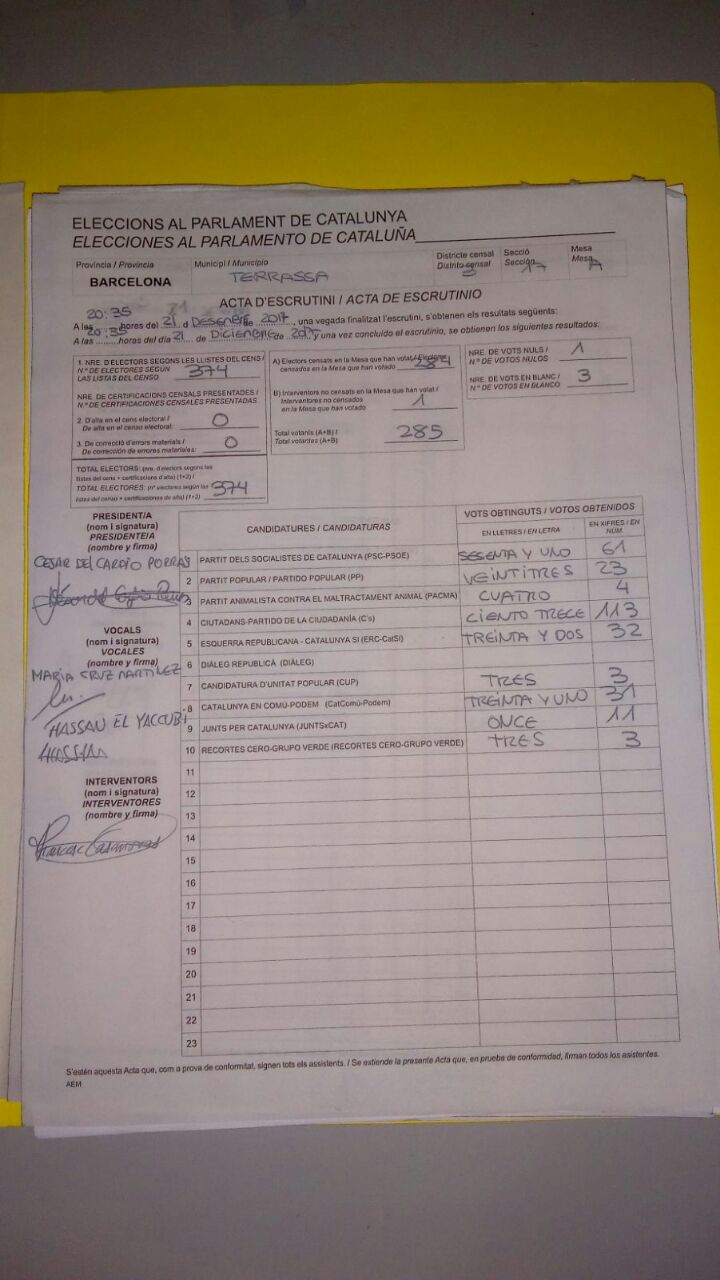 ELECCIONS AL PARLAMENT DE CATALUNYA
ELECCIONES AL PARLAMENTO DE CATALUÑA
Província / Provincia
BARCELONA
Municipi / Municipio
TERRASSA
Districte censal
Distrito censal
3
Secció
Sección
17
Mesa
Mesa
A
ACTA D'ESCRUTINI / ACTA DE ESCRUTINIO
A las 20:35 horas del 21 d DESEMBRE de 2017, una vegada finalitzat l'escrutini, s'obtenen els resultats següents:
A las 20:35 horas del día 21 de DICIEMBRE de 2017 y una vez concluido el escrutinio, se obtienen los siguientes resultados:
1. NRE. D'ELECTORS SEGONS LES LLISTES DEL CENS /
N.º DE ELECTORES SEGÚN
LAS LISTAS DEL CENSO 374
NRE. DE CERTIFICACIONS CENSALS PRESENTADES /
N.º DE CERTIFICACIONES CENSALES PRESENTADAS
2. D'alta en el cens electoral /
De alta en el censo electoral: 0
3. De correcció d'errors materials /
De corrección de errores materiales: 0
TOTAL ELECTORS: (nre. d'electors segons les
llistes del cens + certificacions d'alta) (1+2) /
TOTAL ELECTORES: (nº electores según las
listas del censo + certificaciones de alta) (1+2) 374
A) Electors censats en la Mesa que han votat / Electores
censados en la Mesa que han votado 284
B) Interventors no censats en la Mesa que han votat /
Interventores no censados
en la Mesa que han votado 1
Total votants (A+B) /
Total votantes (A+B) 285
NRE. DE VOTS NULS /
N.º DE VOTOS NULOS 1
NRE. DE VOTS EN BLANC /
N.º DE VOTOS EN BLANCO 3
PRESIDENT/A
(nom i signatura)
PRESIDENTE/A
(nombre y firma)
CESAR DEL CARPIO PORRAS
VOCALS
(nom i signatura)
VOCALES
(nombre y firma)
MARIA CRUZ MARTINEZ
HASSAN EL YACCUBI
HASSAN
INTERVENTORS
(nom i signatura)
INTERVENTORES
(nombre y firma)
CANDIDATURES / CANDIDATURAS
VOTS OBTINGUTS / VOTOS OBTENIDOS
EN LLETRES / EN LETRA
EN XIFRES / EN NÚM.
PARTIT DELS SOCIALISTES DE CATALUNYA (PSC-PSOE) SESENTA Y UNO 61
2 PARTIT POPULAR / PARTIDO POPULAR (PP) VEINTITRES 23
3 PARTIT ANIMALISTA CONTRA EL MALTRACTAMENT ANIMAL (PACMA) CUATRO 4
4 CIUTADANS-PARTIDO DE LA CIUDADANÍA (C's) CIENTO TRECE 113
5 ESQUERRA REPUBLICANA - CATALUNYA SI (ERC-CatSI) TREINTA Y DOS 32
6 DIÀLEG REPUBLICÀ (DIÀLEG)
7 CANDIDATURA D'UNITAT POPULAR (CUP) TRES 3
8 CATALUNYA EN COMÚ-PODEM (CatComú-Podem) TREINTA Y UNO 31
9 JUNTS PER CATALUNYA (JUNTSxCAT) ONCE 11
10 RECORTES CERO-GRUPO VERDE (RECORTES CERO-GRUPO VERDE) TRES 3
11
12
13
14
15
16
17
18
19
20
21
22
23
S'estén aquesta Acta que, com a prova de conformitat, signen tots els assistents. / Se extiende la presente Acta que, en prueba de conformidad, firman todos los asistentes.
AEM